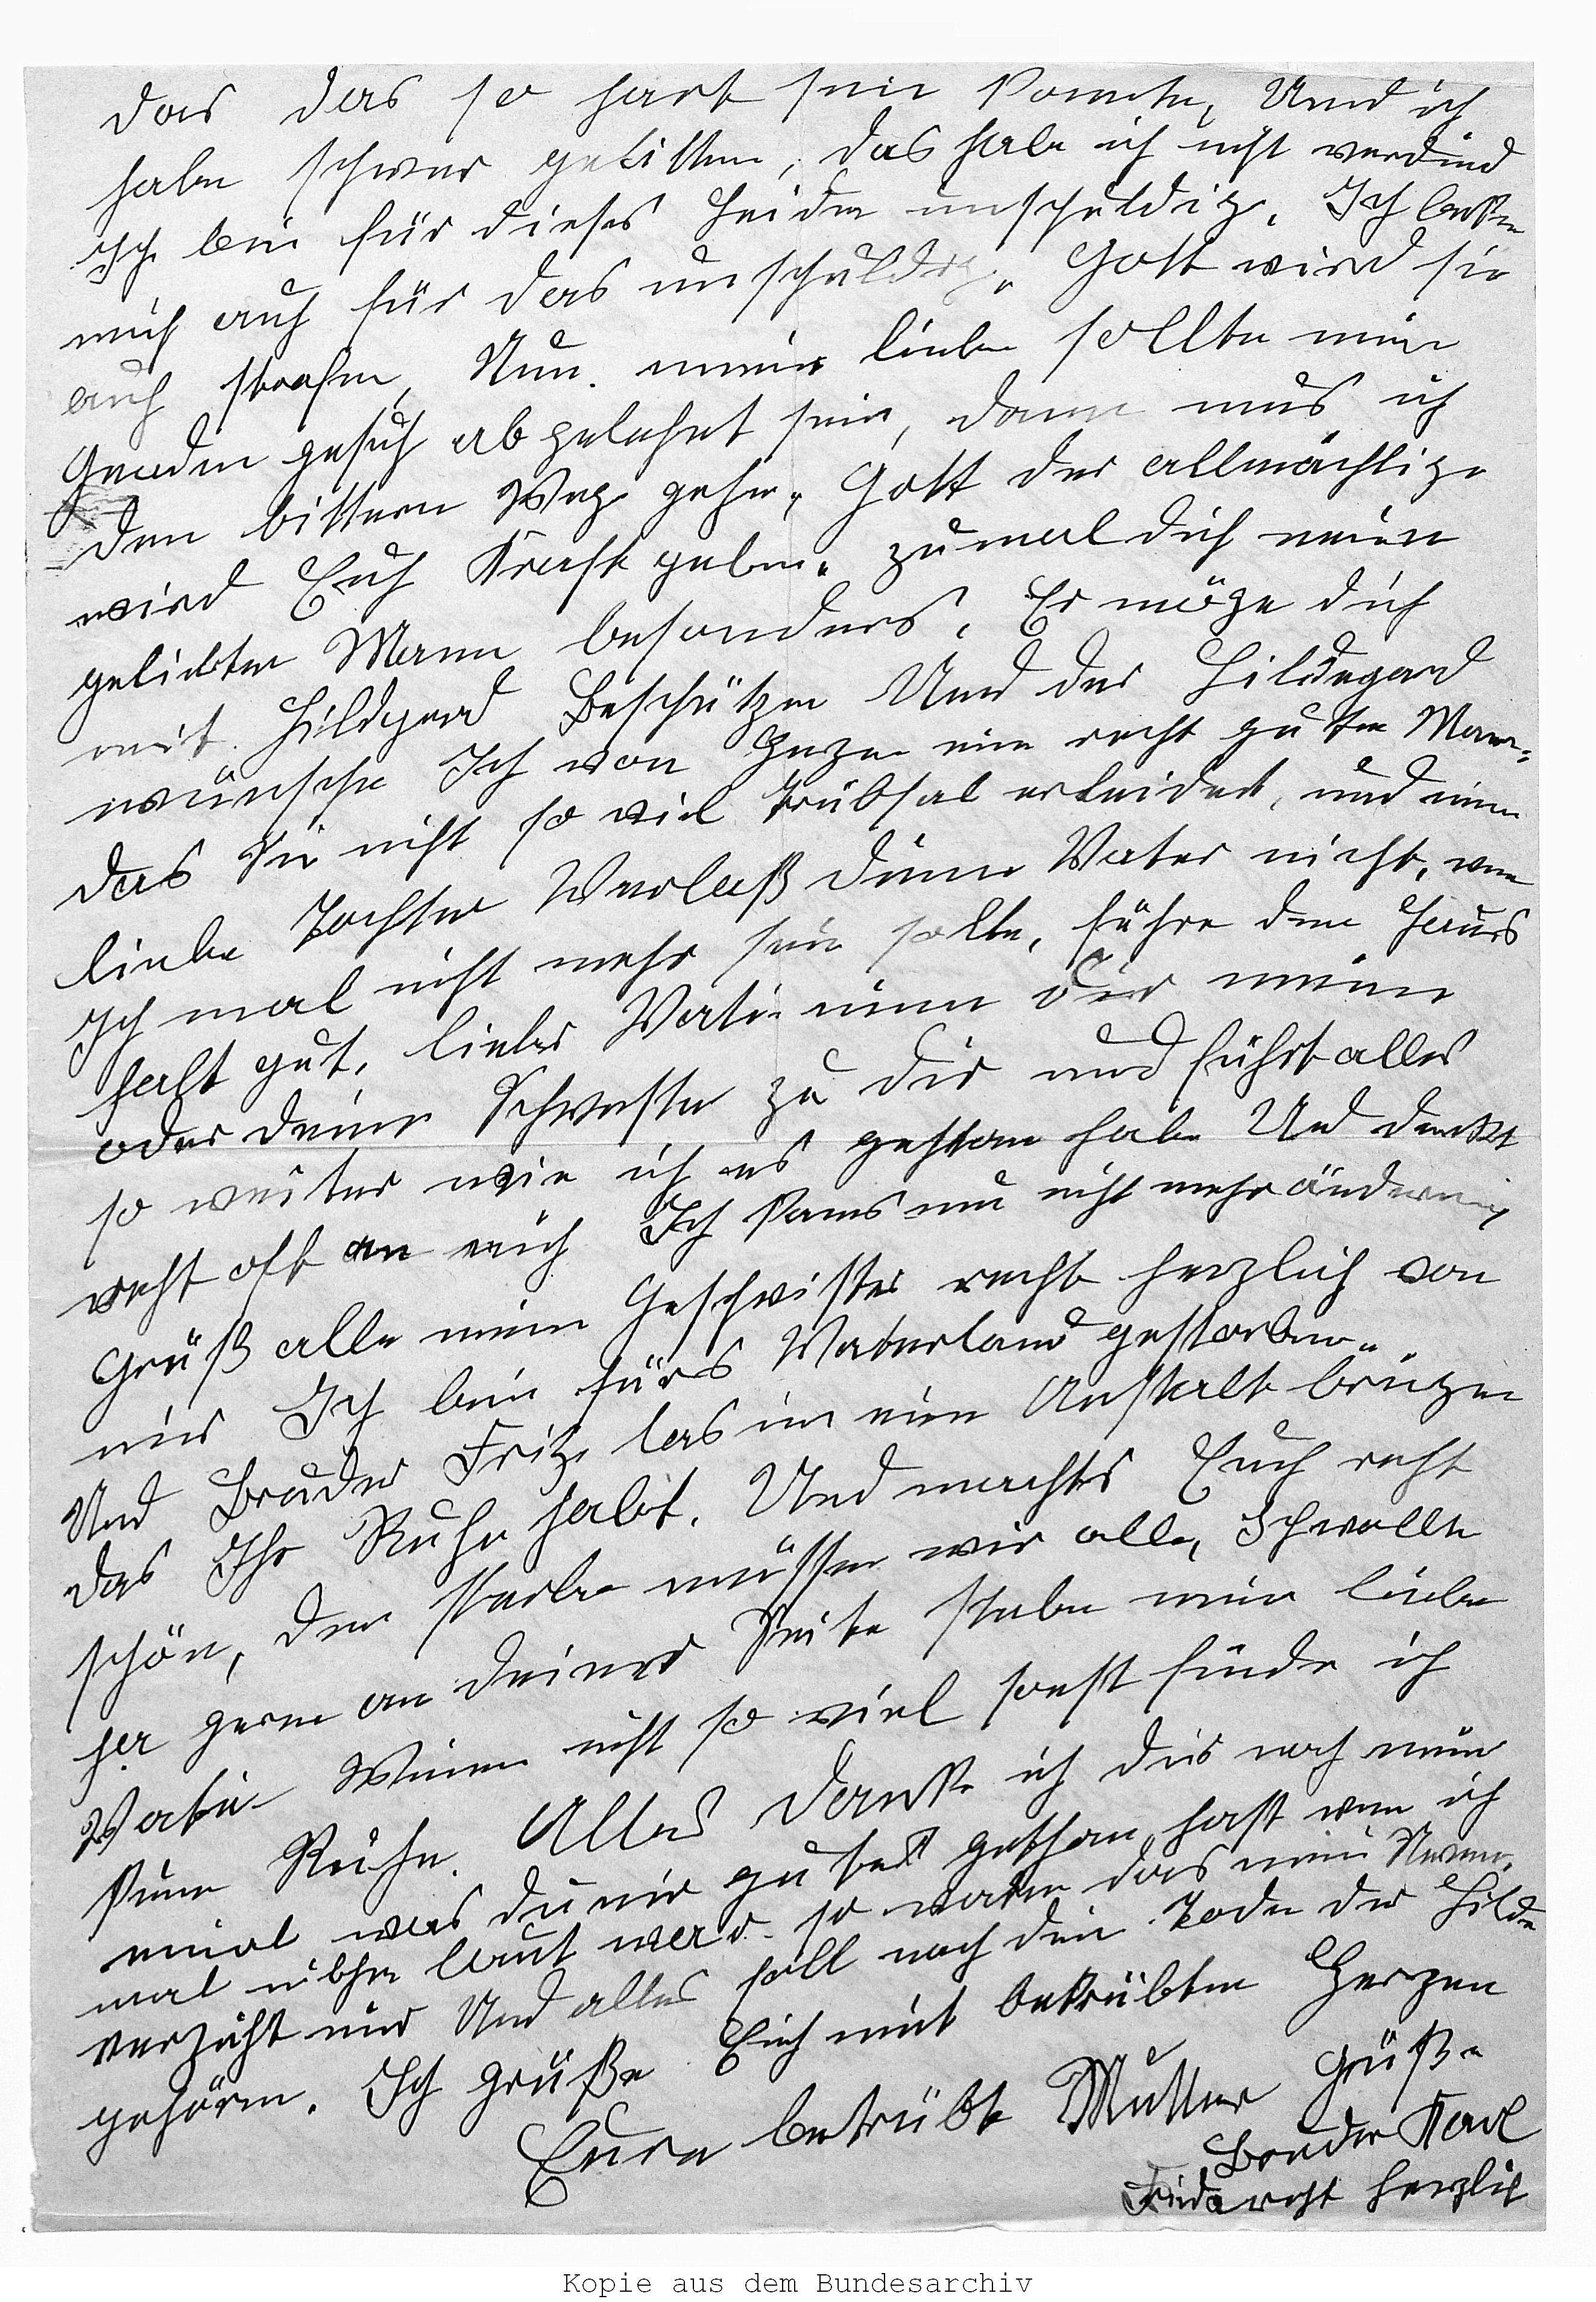 das das so hart sein konnte, Und ich
habe schwer gelitten, das habe ich nicht verdind
Ich bin für dieses Leiden unschuldig. Ich
mich auch für das unschuldig. Gott wird sie
auch strafen, Nun meine lieben sollte mein
Gnaden gesuch abgelehnt sein, dann mus ich
den bittern Weg gehen, Gott der allmächtige
wird Euch Kraft geben. zumal dich meinen
geliebten Mann besonders. Er möge dich
mit Hildegard Beschützen Und der Hildegard
wünsche Ich von Herzen ein recht guten Mann,
das Sie nicht so viel Trübsal erleidet, und nun
liebe Tochter Verlaß deinen Vater nicht, wen
Ich mal nicht mehr sein sollte, führe den Haus
halt gut, lieber Vati nim dir meine
oder deine Schwester zu dir und führt alles
so weiter wie ich es gethan habe Und denkt
recht oft an mich Ich kans nun nicht mehr ändern
Grüß alle meine Geschwister recht herzlich von
mir Ich bin fürs Vaterland gestorben.
Und Bruder Fritz las in eine Anstalt bringen
das Ihr Ruhe habt. Und machts Euch recht
schön, den sterben müssen wir alle, Ich wollte
ja gerne an deiner Seite sterben mein lieber
Vati. Weine nicht so viel sonst finde ich
keine Ruhe. Alles Danke ich dir noch mein
mal was du mir gutes gethan hast wen ich
mal laut war so waren das meine Nerven,
verzeiht mir Und alles soll nach dein Tode der Hilde
gehören. Ich grüße Euch mit betrübten Herzen
Eure betrübte Mutter Grüße
Bruder Karl
Frieda recht herzlich
Kopie aus dem Bundesarchiv